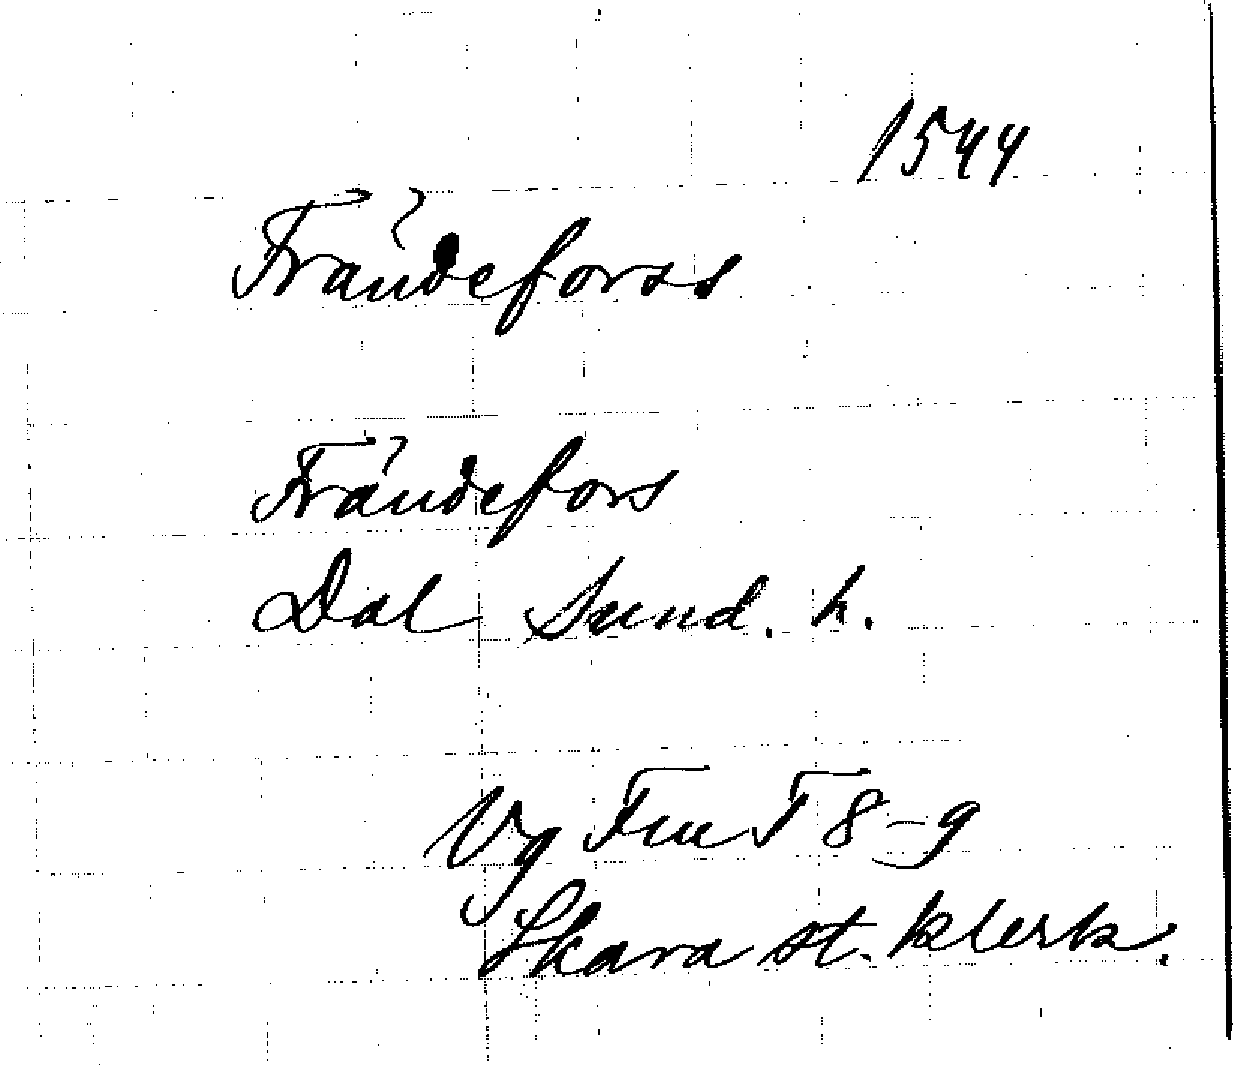 1544
Frändeforss
Frändefors
Dal Sund. h.
Vg 8-9
Skara st. klerk.